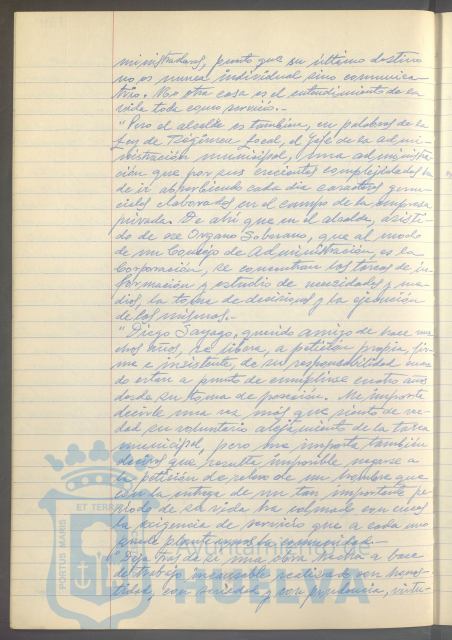 ministrados, puesto que su último destino
no es nunca individual sino comunita-
rio. No otra cosa es el entendimiento de la
vida toda como servicio.-
"Pero el alcalde es también, en palabras de la
Ley de Régimen Local, el Jefe de la admi-
nistración municipal, una administra-
ción que por sus crecientes complejidades ha
de ir absorbiendo cada día caracteres geren-
ciales elaborados en el campo de la empresa
privada. De ahí que en el alcalde, asisti-
do de ese Organo Soberano, que al modo
de un Consejo de Administración, es la
Corporación, se concentran las tareas de in-
formación y estudio de necesidades y me-
dios, la toma de decisiones y la ejecución
de las mismas.-
"Diego Sayago, querido amigo de hace mu-
chos años, se libera, a petición propia, fir-
me e insistente, de su responsabilidad cuan-
do están a punto de cumplirse cuatro años
desde su toma de posesión. Me importa
decirle una vez más que siento de ver-
dad su voluntario alejamiento de la tarea
municipal, pero me importa también
deciros que resulta imposible negarse a
la petición de relevo de un hombre que
con la entrega de un tan importante pe-
riodo de su vida ha colmado con creces
la exigencia de servicio que a cada uno
puede plantearnos la comunidad.-
"Deja tras de sí una obra hecha a base
de trabajo incansable realizado con hones-
tidad, con seriedad y con prudencia, virtu-
PORTUS MARIS
ET TERRAE
Ayuntamiento de
HUELVA